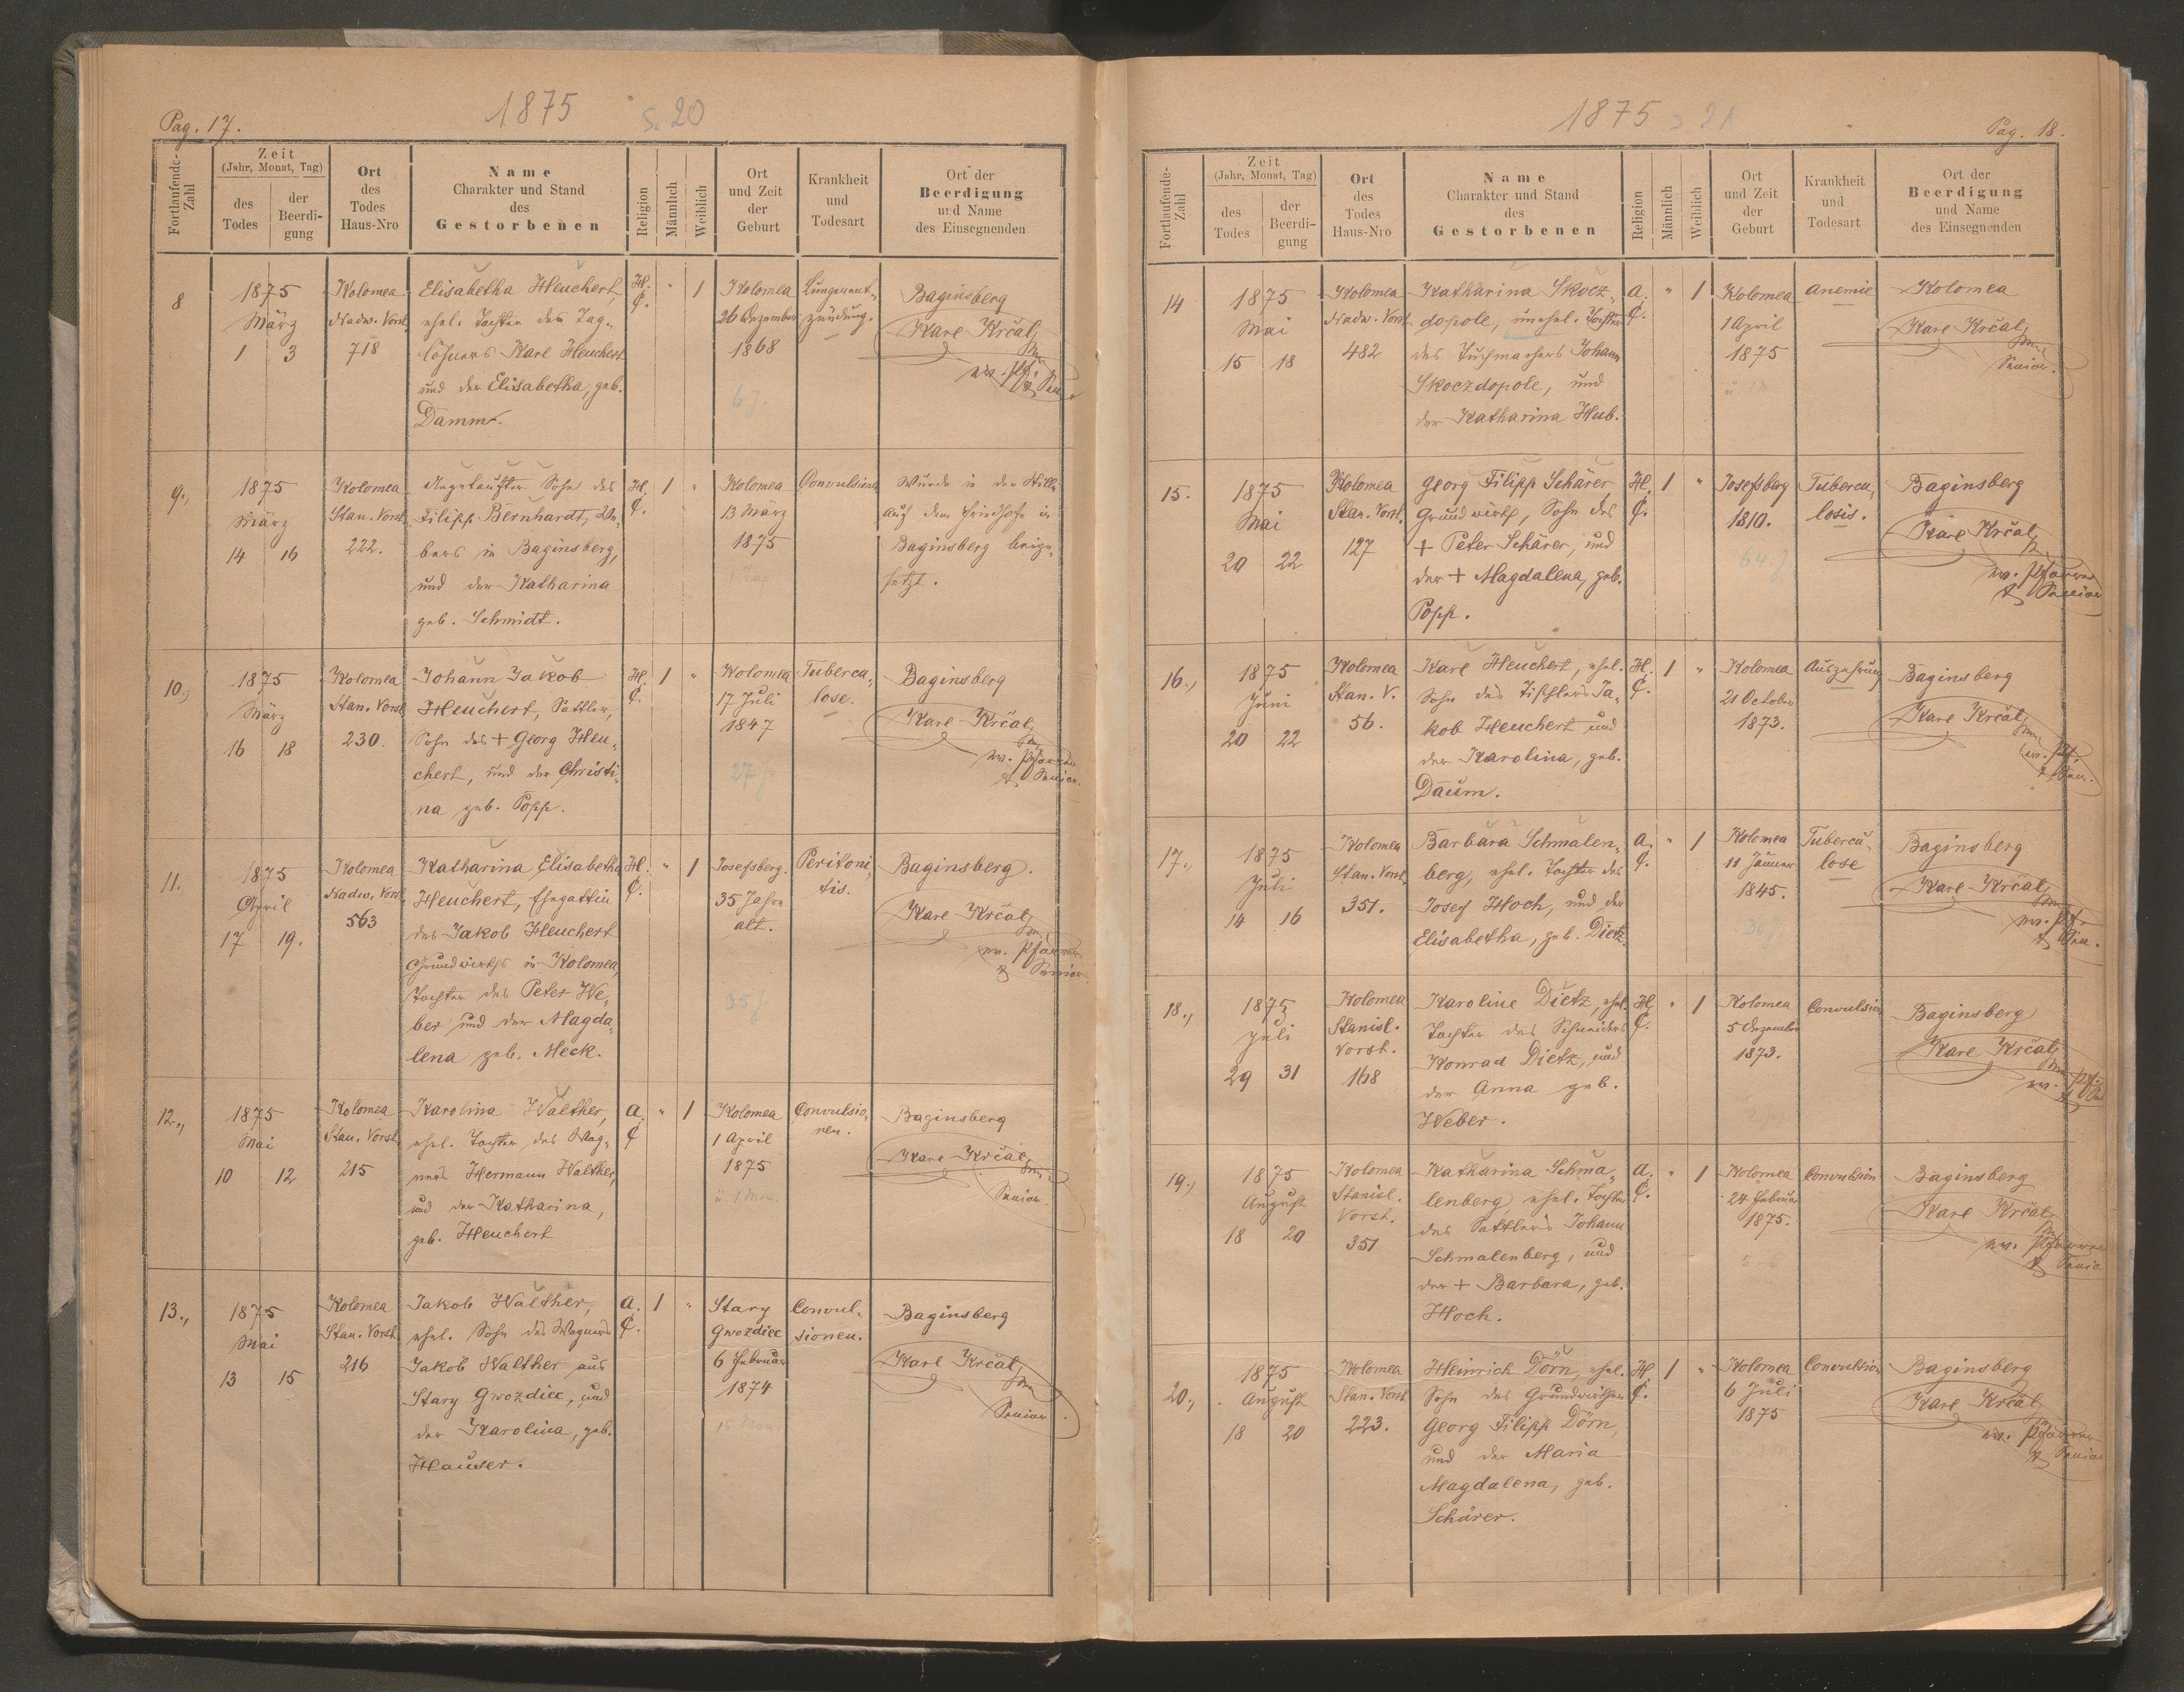 1875 S. 20
Pag. 17.
Fortlaufende-Zahl
Zeit
(Jahr, Monat, Tag)
des Todes
der Beerdi-gung
Ort
des
Todes
Haus-Nro
Name
Charakter und Stand
des
Gestorbenen
Religion
Männlich
Weiblich
Ort
und Zeit
der
Geburt
Krankheit
und
Todesart
Ort der
Beerdigung
und Name
des Einsegnenden
8
1875
März
1 3
Kolomea
Nadw. Vorst
718
Elisabetha Heuchert,
ehel. Tochter des Tag-
löhners Karl Heuchert
und der Elisabetha, geb.
Damm.
H.
C.
" 1
Kolomea
26 Dezember
1868
6 J.
Lungenent-
zündung.
Baginsberg
Karl Krčal
9.,
1875
März
14 16
Kolomea
Stan. Vorst.
222.
Ungetaufter Sohn des
Filipp Bernhardt, We-
bers in Baginsberg,
und der Katharina
geb. Schmidt.
H.
C.
1 "
Kolomea
13 März
1875
1 Tag
Convulsionen
Wurde in der Stille
auf dem Friedhofe in
Baginsberg beige-
setzt.
10.,
1875
März
16 18
Kolomea
Stan. Vorst
230.
Johann Jakob
Heuchert, Sattler,
Sohn des + Georg Heu-
chert, und der Christi-
na geb. Popp.
H.
C.
1 "
Kolomea
17 Juli
1847
27 J.
Tubercu-
lose.
Baginsberg
Karl Krčal
ev. Pfarrer
& Senior.
11.,
1875
April
17 19.
Kolomea
Nadw. Vorst.
563
Katharina Elisabetha
Heuchert, Ehegattin
des Jakob Heuchert
Grundwirths in Kolomea,
Tochter des Peter We-
ber und der Magda-
lena geb. Meck.
H.
C.
" 1
Josefsberg.
35 Jahre
alt.
35 J.
Peritoni-
tis.
Baginsberg.
Karl Krčal
ev. Pfarrer
& Senior
12.,
1875
Mai
10 12
Kolomea
Stan. Vorst
215
Karolina Walther,
ehel. Tochter des Wag-
ners Hermann Walther,
und der Katharina,
geb. Heuchert
A.
C
" 1
Kolomea
1 April
1875
ü. 1 Mon.
Convulsio-
nen.
Baginsberg
Karl Krčal
Senior
13.,
1875
Mai
13 15
Kolomea
Stan. Vorst.
216
Jakob Walther,
ehel. Sohn des Wagners
Jakob Walther aus
Stary Gwozdiec, und
der Karolina, geb.
Hauser.
A.
C.
1 "
Stary
Gwozdiec
6 Februar
1874
15 Mon
Convul-
sionen.
Baginsberg
Karl Krčal
Senior.
1875 s 21
Pag. 18.
Fortlaufende-Zahl
Zeit
(Jahr, Monat, Tag)
des Todes
der Beerdi-gung
Ort
des
Todes
Haus-Nro
Name
Charakter und Stand
des
Gestorbenen
Religion
Männlich
Weiblich
Ort
und Zeit
der
Geburt
Krankheit
und
Todesart
Ort der
Beerdigung
und Name
des Einsegnenden
14
1875
Mai
15 18
Kolomea
Nadw. Vorst
482
Katharina Skocz-
dopole, unehel. Tochter
des Tuchmachers Johann
Skoczdopole, und
der Katharina Hub.
A.
C.
" 1
Kolomea
1 April
1875
Anemie
Kolomea
Karl Krčal
Senior.
15.
1875
Mai
20 22
Kolomea
Stan. Vorst.
127
Georg Filipp Schärer
Grundwirth, Sohn des
+ Peter Schärer, und
der + Magdalena, geb.
Popp.
H.
C.
1 "
Josefsbeg
1810.
64. J.
Tubercu-
losis.
Baginsberg
Karl Krčal
ev. Pfarrer
& Senior
16.,
1875
Juni
20 22
Kolomea
Stan. V.
56.
Karl Heuchert, ehel.
Sohn des Tischlers Ja-
kob Heuchert und
der Karolina, geb.
Daum.
H.
C.
1 "
Kolomea
21 October
1873.
Auszehrung
Baginsberg
Karl Krčal
ev. Pf.
& Sen.
17.,
1875
Juli
14 16
Kolomea
Stan. Vorst.
351.
Barbara Schmalen-
berg, ehel. Tochter des
Josef Hoch, und der
Elisabetha, geb. Dietz.
A.
C.
" 1
Kolomea
11 Jänner
1845.
30 J.
Tubercu-
lose
Baginsberg
Karl Krčal
ev. Pf.
& Sen.
18.,
1875
Juli
29 31
Kolomea
Stanisl.
Vorst.
168
Karoline Dietz, ehel.
Tochter des Schneiders
Konrad Dietz, und
der Anna geb.
Weber.
H.
C.
" 1
Kolomea
5 Dezember
1873.
Convulsion
Baginsberg
Karl Krčal
ev. Pf.
19.,
1875
August
18 20
Kolomea
Stanisl.
Vorst.
351
Katharina Schma-
lenberg ehel. Tochter
des Sattlers Johann
Schmalenberg, und
der + Barbara, geb.
Hoch.
A.
C.
" 1
Kolomea
24 Februar
1875.
Convulsion
Baginsberg
Karl Krčal
ev. Pfarrer
& Senior
20.,
1875
August
18 20
Kolomea
Stan. Vorst
223.
Heinrich Dörn, ehel.
Sohn des Grundwirthen
Georg Filipp Dörn,
und der Maria
Magdalena, geb.
Schärer.
H.
C.
1 "
Kolomea
6 Juli
1875
Convulsion
Baginsberg
Karl Krčal
ev. Pfarrer
& Senior